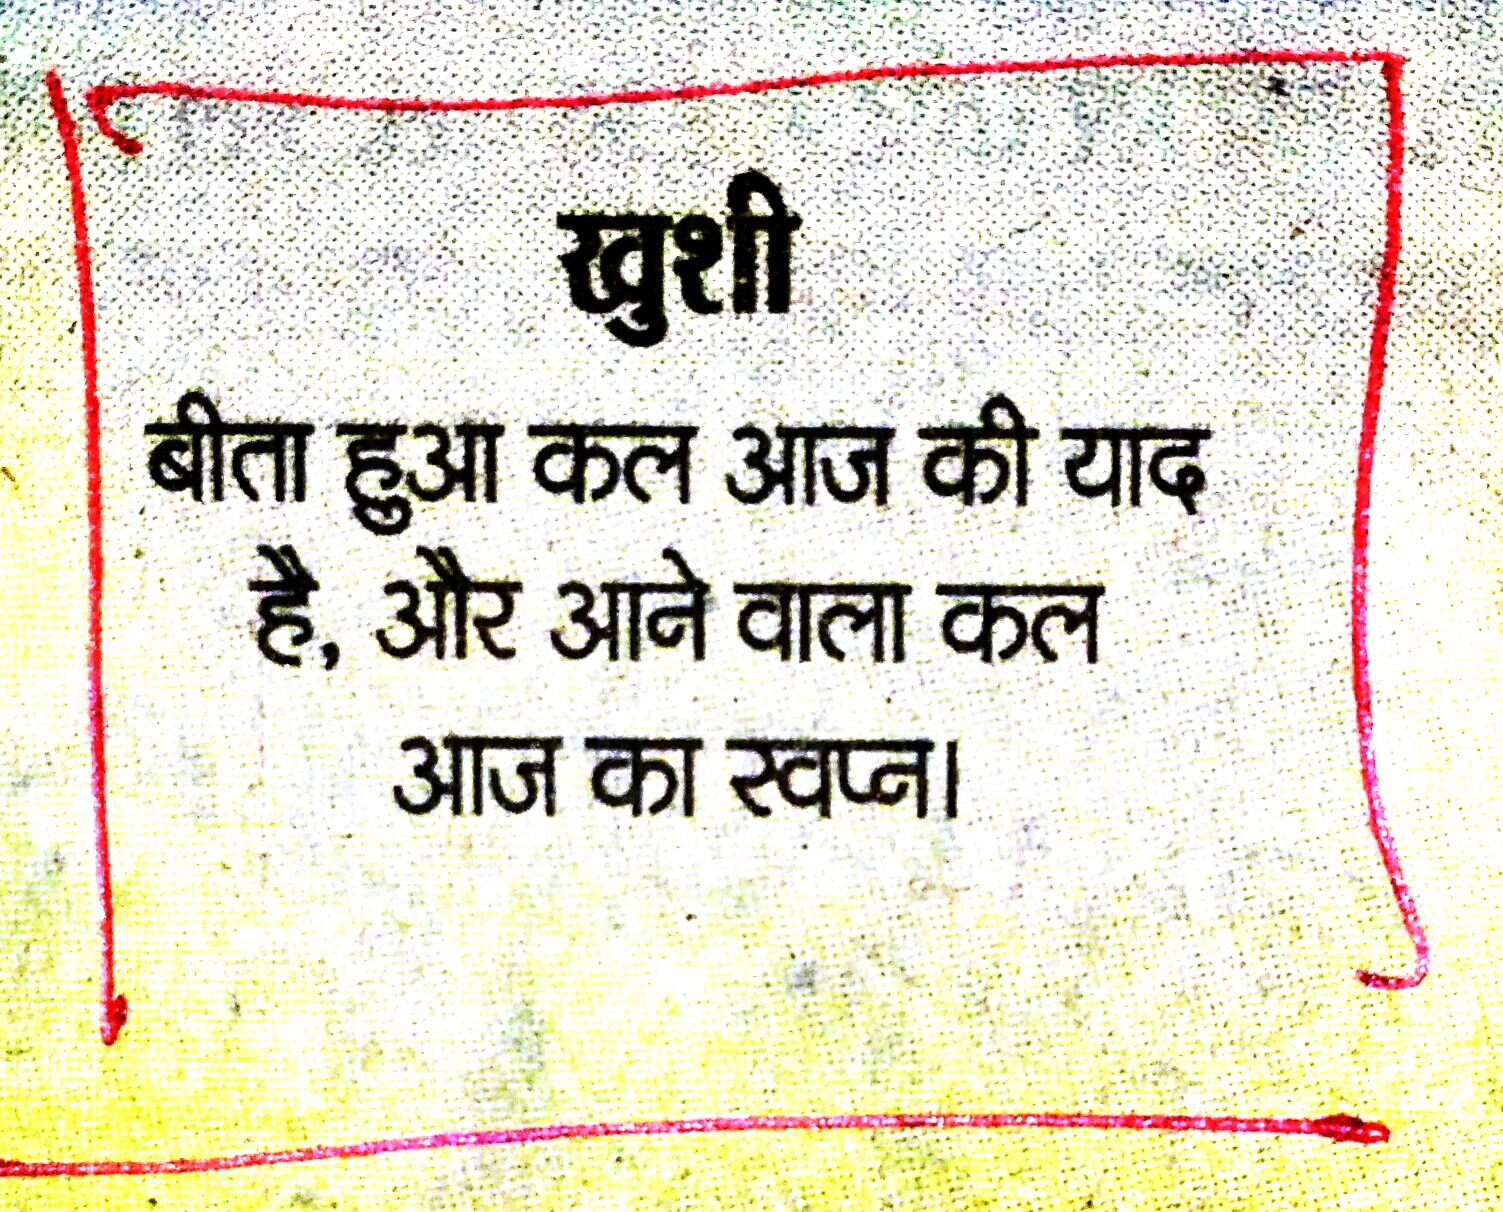 खुशी
बीता हुआ कल आज की याद
है, और आने वाला कल
आज का स्वप्न।